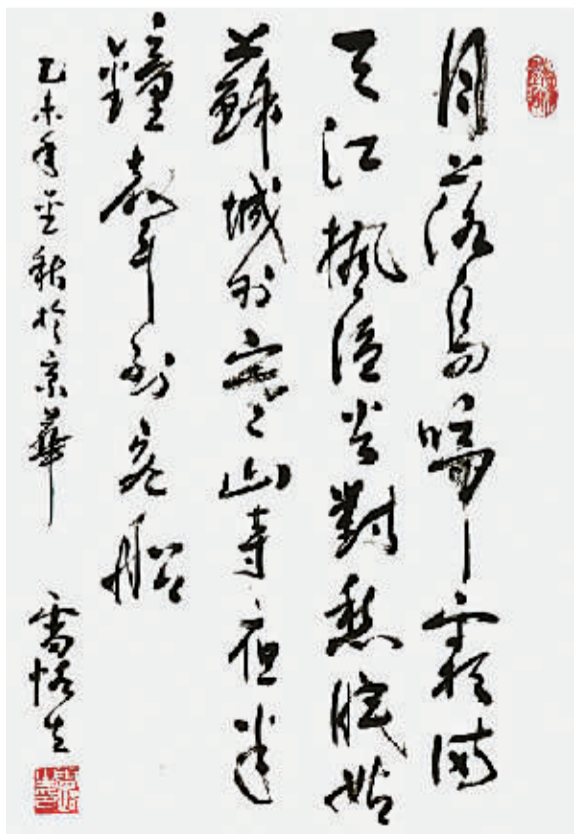 月落烏啼霜滿
天江楓漁火對愁眠姑
蘇城外寒山寺夜半
鐘聲到客船
乙未年金秋於京華 雷恪生